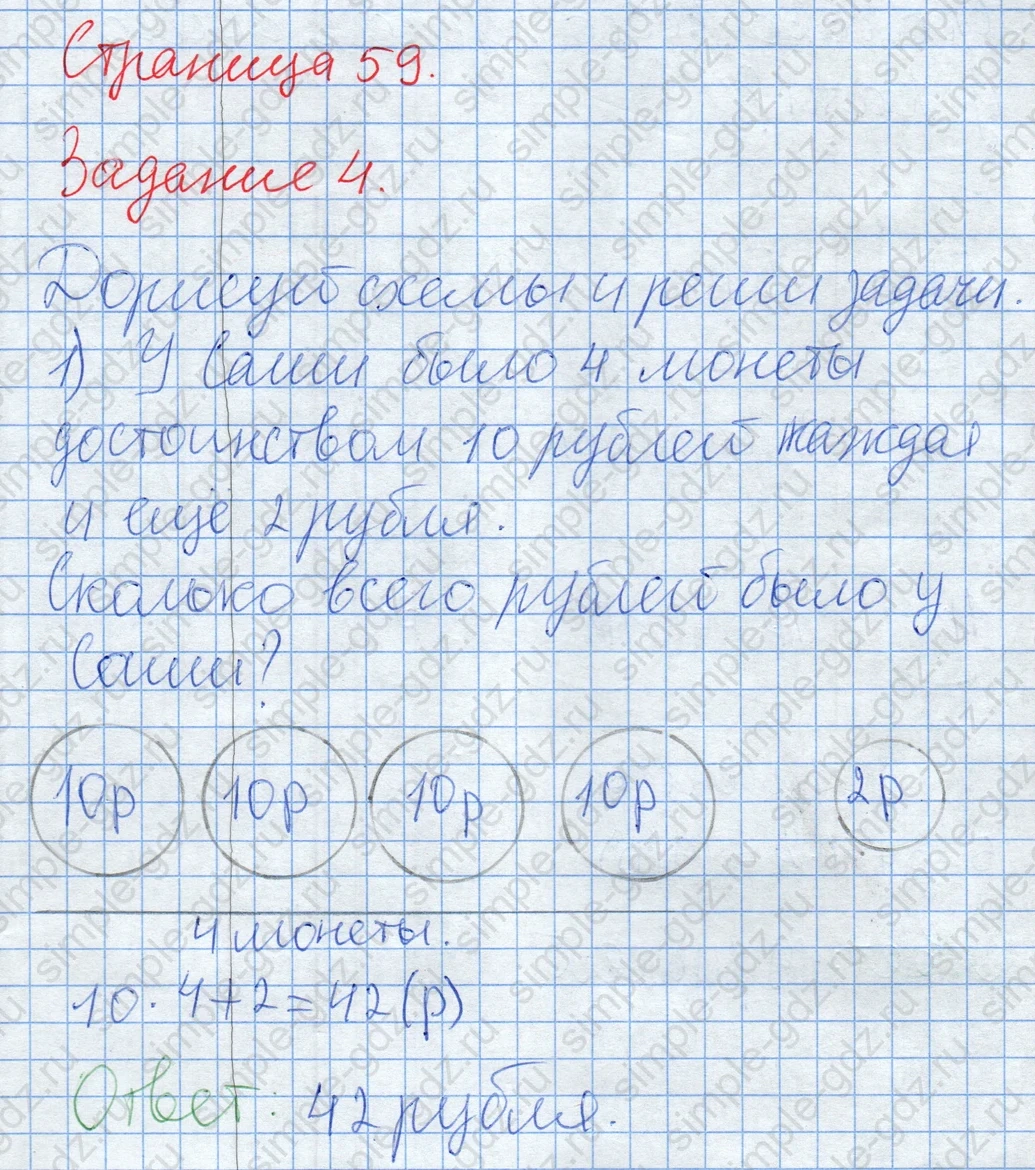 Страница 59.
Задание 4.
Дорисуй схемы и реши задачи.
1) У Саши было 4 монеты
достоинством 10 рублей каждая
и еще 2 рубля.
Сколько всего рублей было у
Саши?
10р 10р 10р 10р 2р
4 монеты.
10 · 4+2=42(р)
Ответ: 42 рубля.
simple-gdz.ru